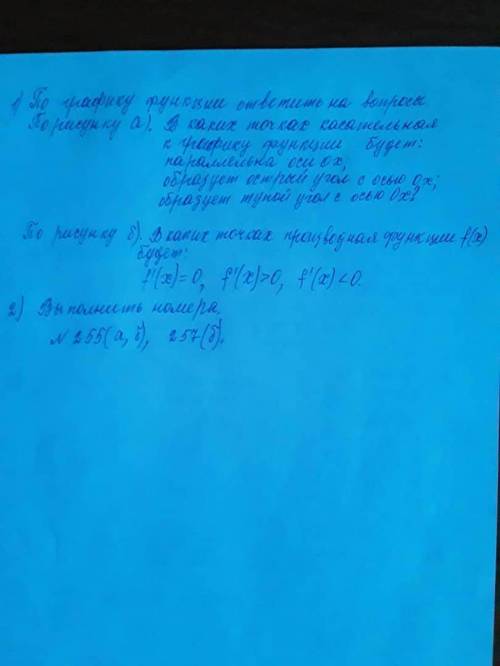 1) По графику функции ответить на вопросы
По рисунку а). В каких точках касательная
к графику функции будет:
параллельна оси ох,
образует острый угол с осью ох;
образует тупой угол с осью Ох?
По рисунку б). В каких точках производная функции f(x)
будет:
f'(x)=0, f'(x)>0, f'(x)<0.
2) Выполнить номера.
№255(а,б), 257(б).